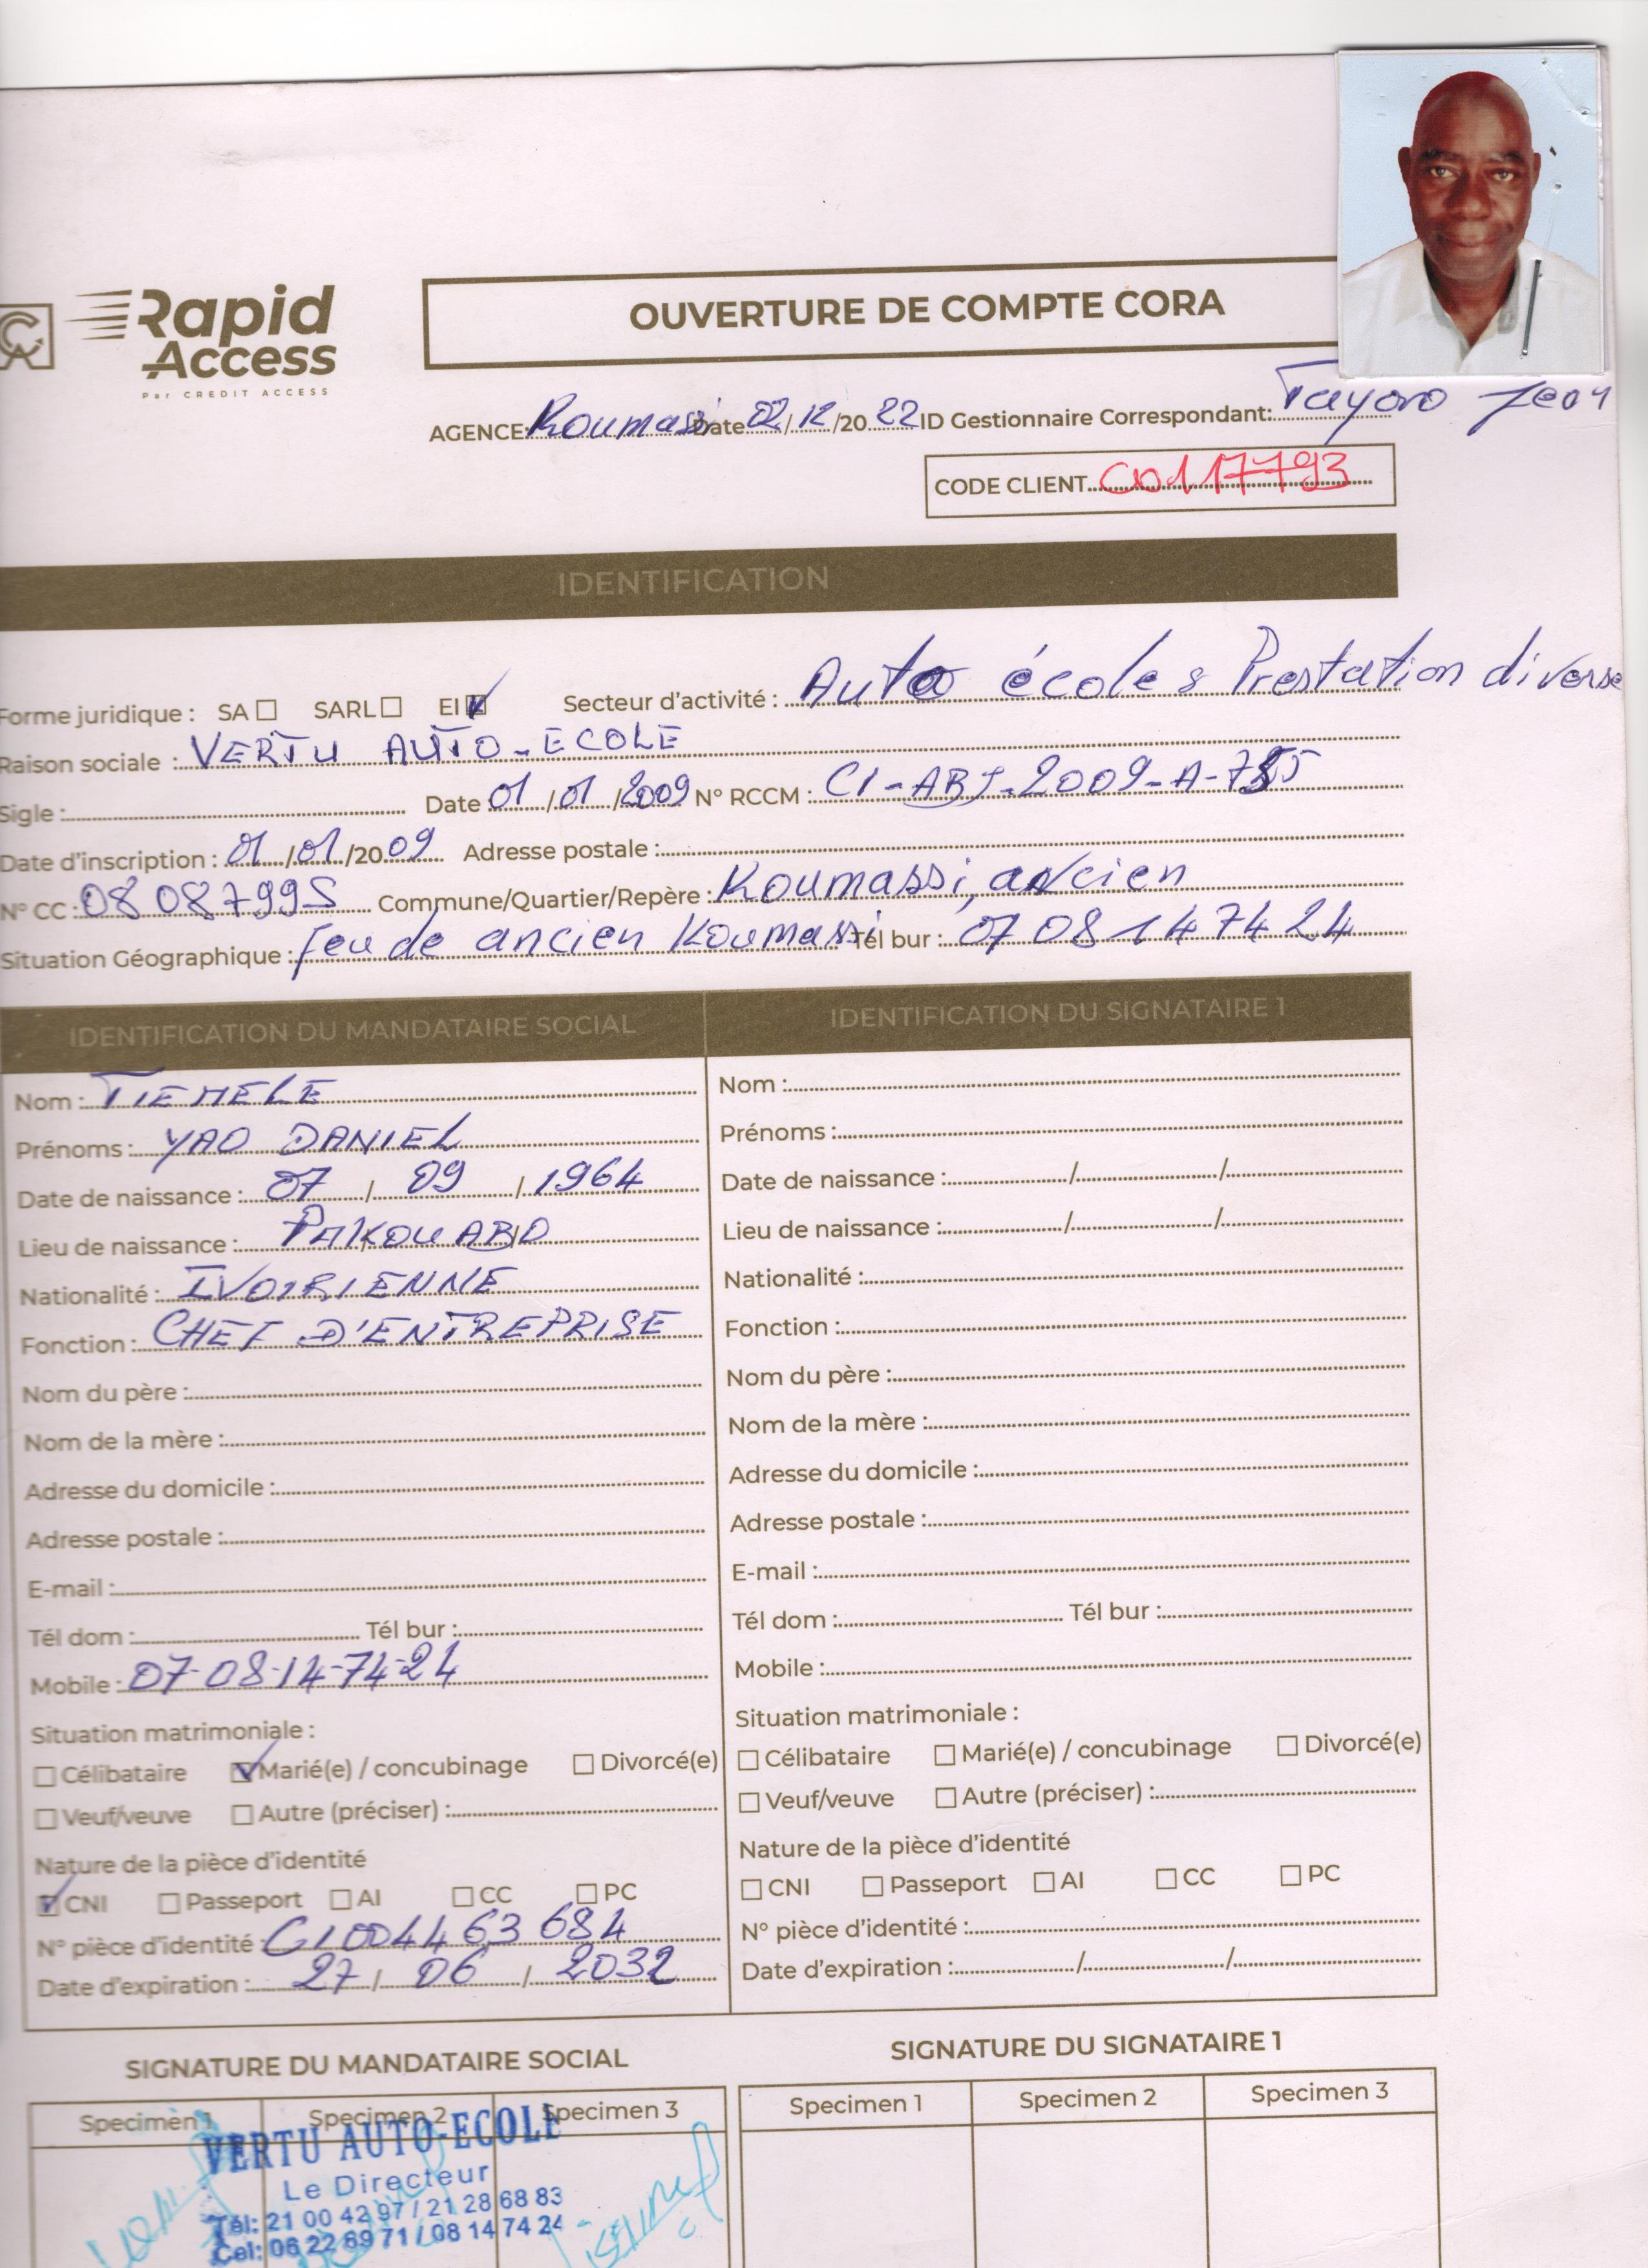 Rapid
Access
Par CREDIT ACCESS
OUVERTURE DE COMPTE CORA
AGENCE: Koumassi Date 02/12/2022 ID Gestionnaire Correspondant: Tayoro Jean
CODE CLIENT C0117793
IDENTIFICATION
Forme juridique : SA ☐ SARL ☐ EI ☑ Secteur d'activité : Auto école & Prestation diverse
Raison sociale : VERTU AUTO-ECOLE
Sigle : Date 01/01/2009 N° RCCM : CI-ABJ-2009-A-
Date d'inscription : 01/01/2009 Adresse postale :
N° CC : 0808799S Commune/Quartier/Repère : Koumassi, ancien
Situation Géographique : feu de ancien Koumassi Tél bur : 07 08 14 74 24
IDENTIFICATION DU MANDATAIRE SOCIAL IDENTIFICATION DU SIGNATAIRE 1
Nom : TIEMELE Nom :
Prénoms : YAO DANIEL Prénoms :
Date de naissance : 07 / 09 / 1964 Date de naissance : / /
Lieu de naissance : PAKOUABO Lieu de naissance : / /
Nationalité : IVOIRIENNE Nationalité :
Fonction : CHEF D'ENTREPRISE Fonction :
Nom du père : Nom du père :
Nom de la mère : Nom de la mère :
Adresse du domicile : Adresse du domicile :
Adresse postale : Adresse postale :
E-mail : E-mail :
Tél dom : Tél bur : Tél dom : Tél bur :
Mobile : 07-08-14-74-24 Mobile :
Situation matrimoniale : Situation matrimoniale :
☐ Célibataire ☑ Marié(e) / concubinage ☐ Divorcé(e) ☐ Célibataire ☐ Marié(e) / concubinage ☐ Divorcé(e)
☐ Veuf/veuve ☐ Autre (préciser) : ☐ Veuf/veuve ☐ Autre (préciser) :
Nature de la pièce d'identité Nature de la pièce d'identité
☑ CNI ☐ Passeport ☐ AI ☐ CC ☐ PC ☐ CNI ☐ Passeport ☐ AI ☐ CC ☐ PC
N° pièce d'identité : CI004463684 N° pièce d'identité :
Date d'expiration : 27 / 06 / 2032 Date d'expiration : / /
SIGNATURE DU MANDATAIRE SOCIAL SIGNATURE DU SIGNATAIRE 1
Specimen 1 Specimen 2 Specimen 3 Specimen 1 Specimen 2 Specimen 3
VERTU AUTO-ECOLE
Le Directeur
Tél: 21 00 42 97 / 21 28 68 83
Cel: 06 22 69 71 / 08 14 74 24